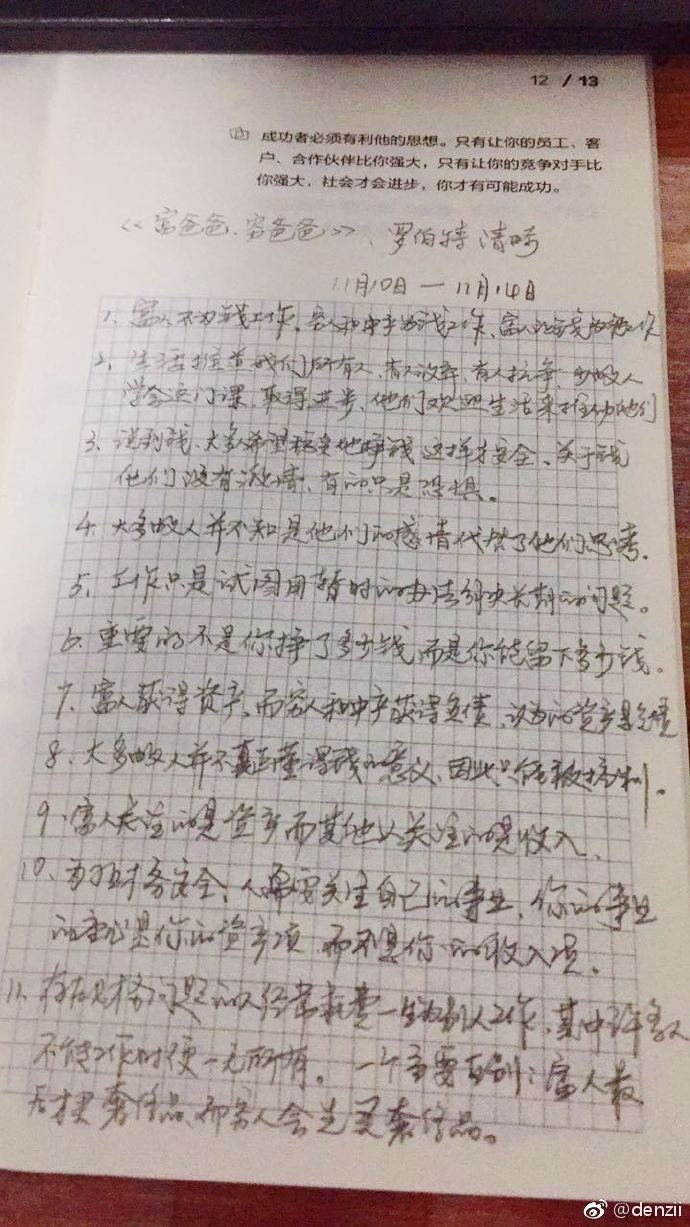 12 / 13
成功者必须有利他的思想。只有让你的员工、客
户、合作伙伴比你强大，只有让你的竞争对手比
你强大，社会才会进步，你才有可能成功。
《富爸爸、穷爸爸》、罗伯特 清崎
11月10日 — 11月14日
1、富人不为钱工作。穷人和中产为钱工作、富人让钱为他工作
2、生活推着我们所有人、有人放弃、有人抗争、少数人
学会这门课、取得进步、他们欢迎生活来推动他们
3、说到钱、大多希望稳来地挣钱 这样才安全、关于钱
他们没有激情、有的只是恐惧。
4、大多数人并不知是他们的感情代替了他们思考.
5、工作只是试图用暂时的办法解决长期的问题。
6、重要的不是你挣了多少钱,而是你能留下多少钱。
7、富人获得资产、而穷人和中产获得负债、认为的资产是负债
8、大多数人并不真正懂得钱的意义、因此只能被控制.
9、富人关注的是资产而其他人关注的是收入、
10、为了财务安全、人需要关注自己的事业，你的事业
的重心是你的资产项 而不是你的收入项.
11、存在财务问题的人经常耗费一生为别人工作、其中许多人
不能工作时便一无所有。一个重要区别：富人最
后才买奢侈品、而穷人会先买奢侈品。
@denzii